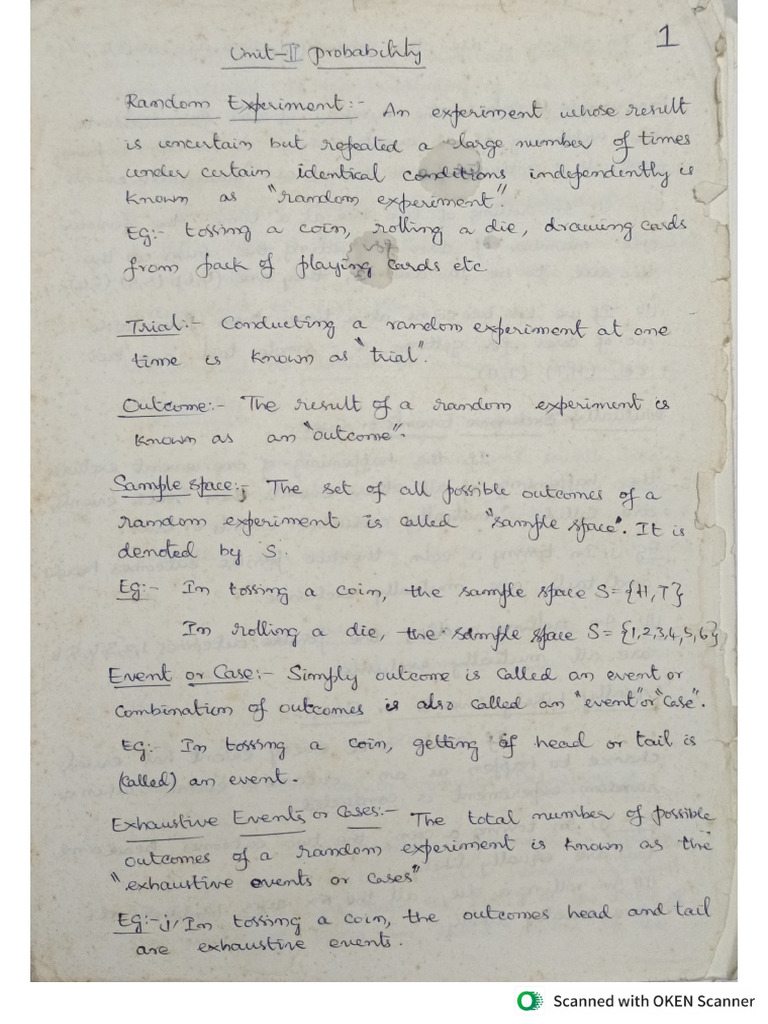 1
Unit-II Probability
Random Experiment:- An experiment whose result
is uncertain but repeated a large number of times
under certain identical conditions independently is
known as "random experiment".
EG:- tossing a coin, rolling a die, drawing cards
from pack of playing cards etc
Trial:- Conducting a random experiment at one
time is known as "trial".
Outcome:- The result of a random experiment is
known as an "outcome".
Sample space:- The set of all possible outcomes of a
random experiment is called "sample space". It is
denoted by S.
Eg:- In tossing a coin, the sample space S={H,T}
In rolling a die, the sample space S={1,2,3,4,5,6}
Event or Case:- Simply outcome is called an event or
combination of outcomes is also called an "event" or "case".
EG:- In tossing a coin, getting of head or tail is
(called) an event.
Exhaustive Events or Cases:- The total number of possible
outcomes of a random experiment is known as the
"exhaustive events or cases"
EG:- i, In tossing a coin, the outcomes head and tail
are exhaustive events.
Scanned with OKEN Scanner